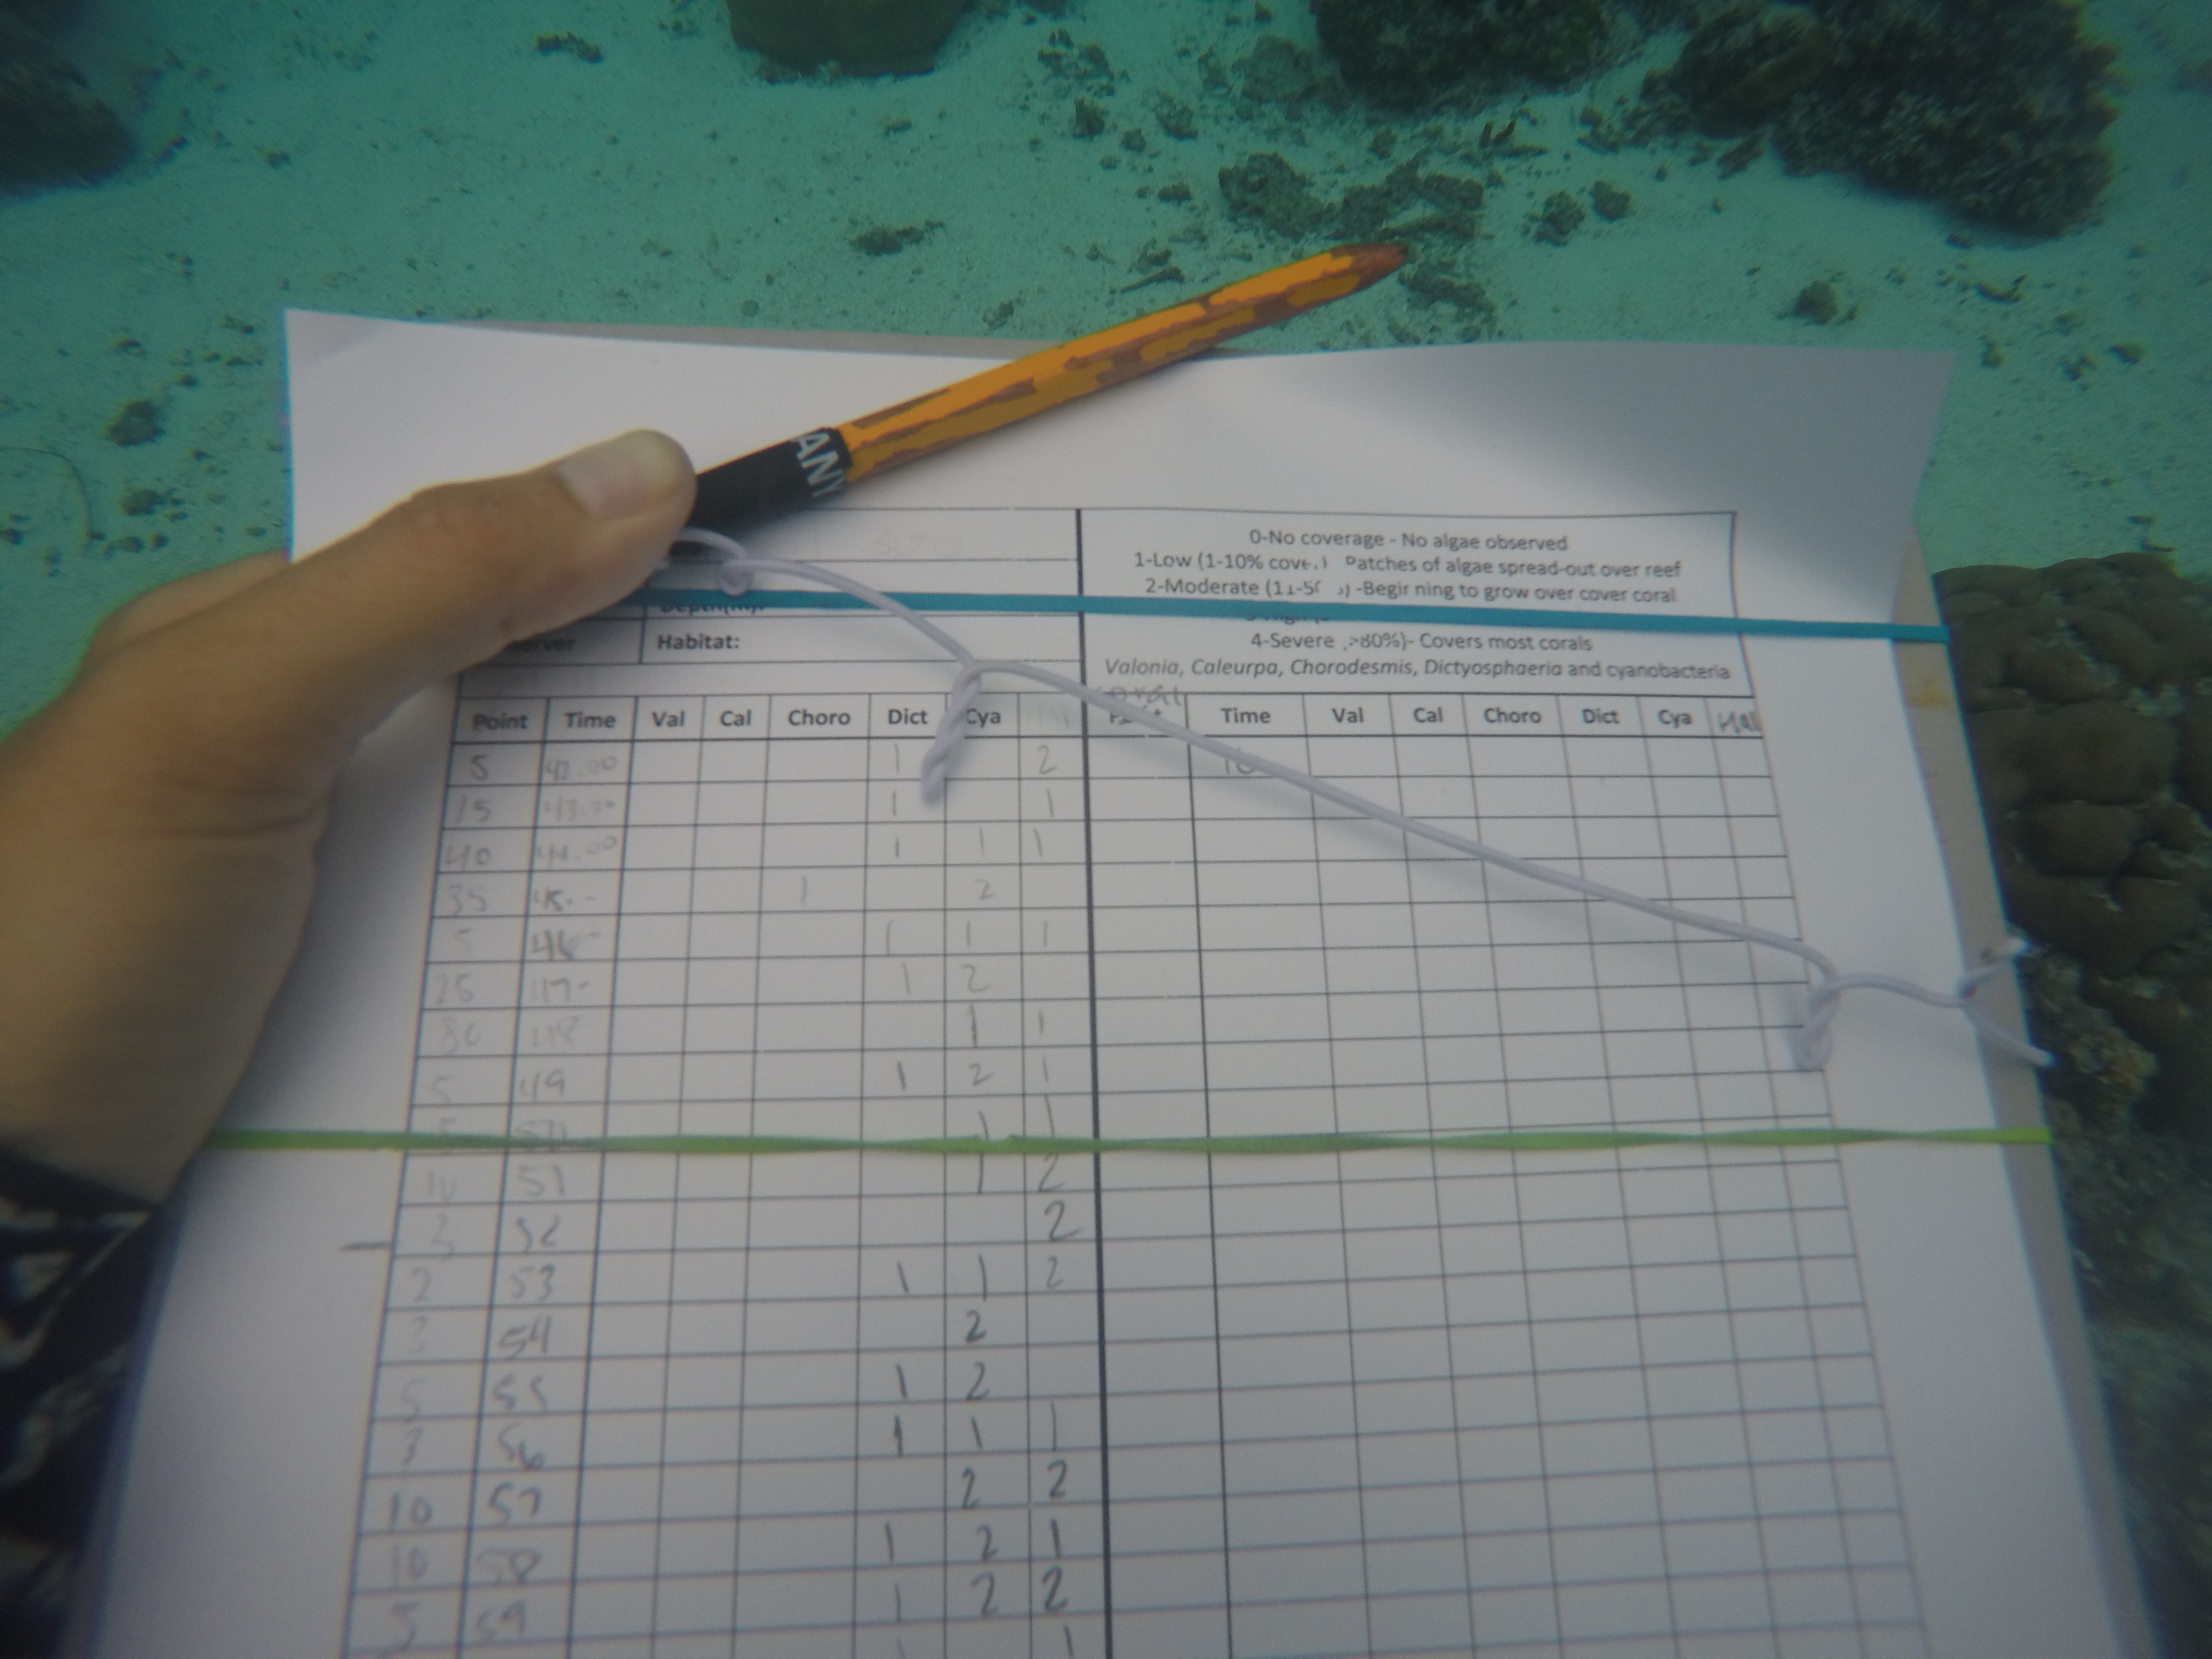 ANY
0-No coverage - No algae observed
1-Low (1-10% cove. Patches of algae spread-out over reef
2-Moderate -Begin ning to grow over cover coral
4-Severe >80%)- Covers most corals
Valonia, Caleurpa, Chorodesmis, Dictyosphaeria and cyanobacteria
Depth(m):
Habitat:
Point Time Val Cal Choro Dict Cya Time Val Cal Choro Dict Cya Hal
5 42.00 1 2
15 1 1
40 44.00 1 1 1
35 45. 1 2
5 46 1 1 1
25 47 1 2
80 48 1 1
5 49 1 2 1
1 1
10 51 1 2
52 2
2 53 1 1 2
3 54 2
5 55 1 2
3 56 1 1 1
10 57 2 2
10 58 1 2 1
5 59 1 2 2
1 1